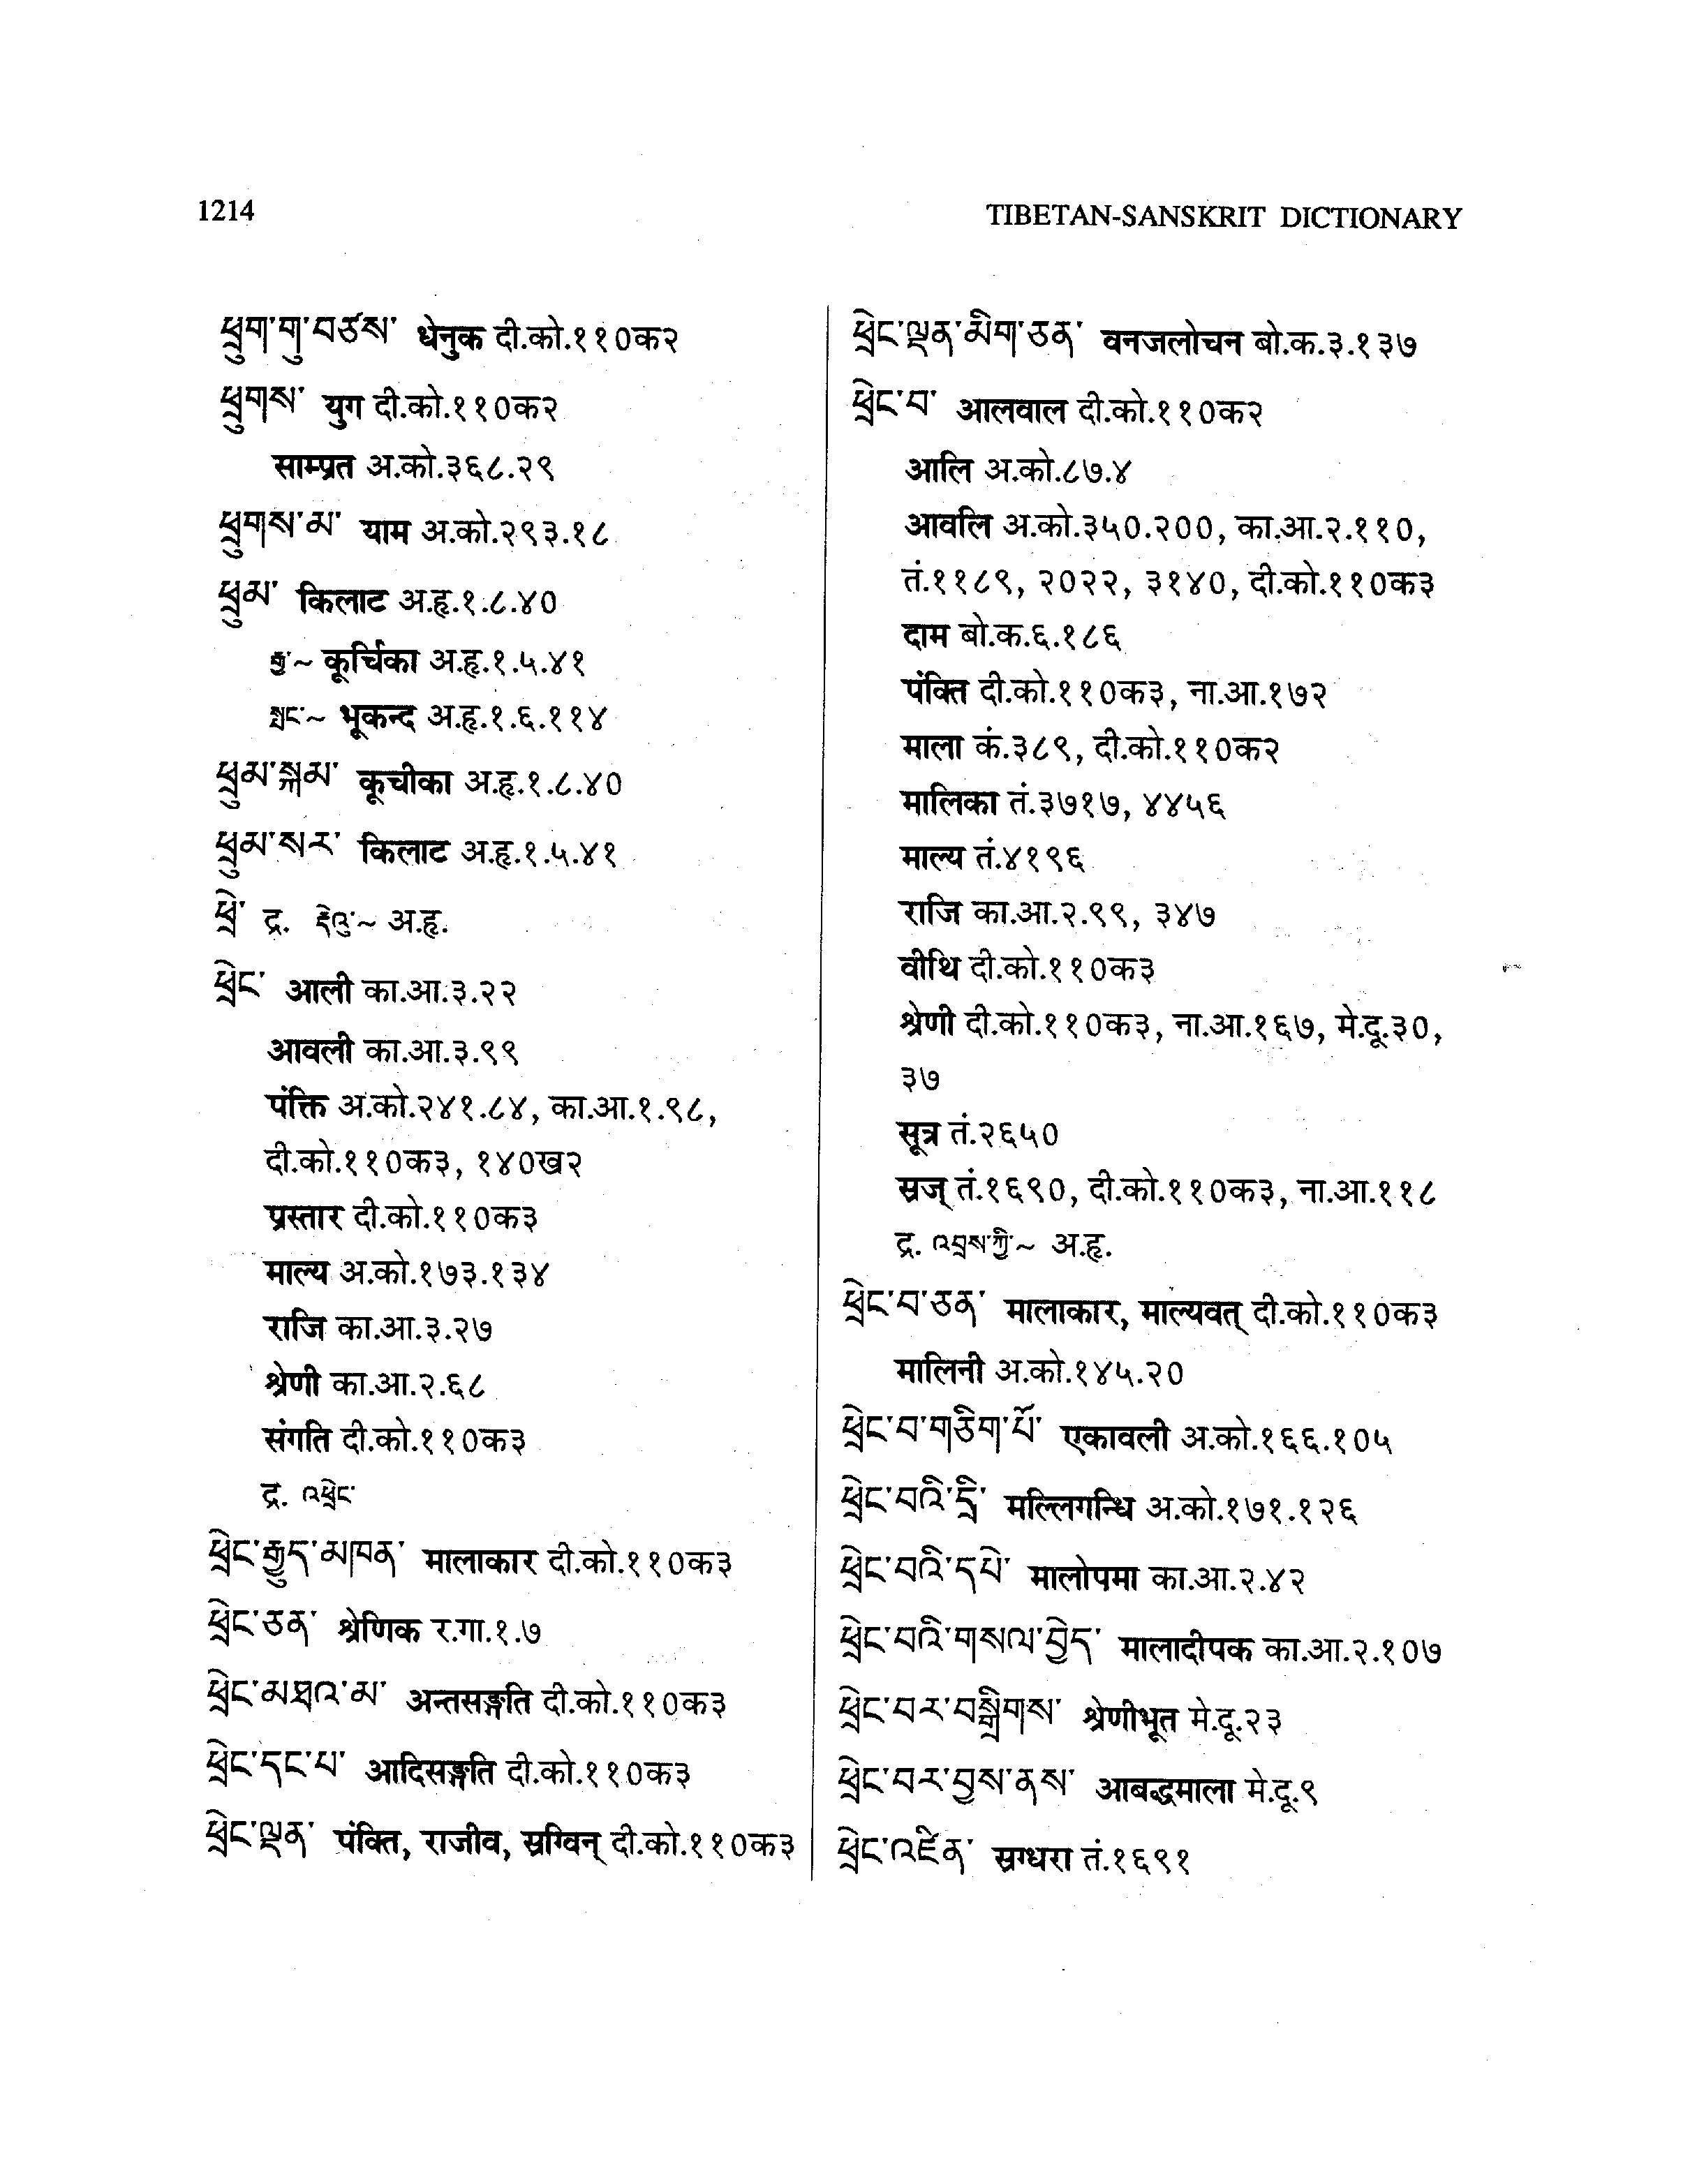 1214
TIBETAN-SANSKRIT DICTIONARY
ཕྲུག་གུ་བཙས་ धेनुक दी.को.११०क२
ཕྲུགས་ युग दी.को.११०क२
साम्प्रत अ.को.३६८.२९
ཕྲུགས་མ་ याम अ.को.२९३.१८
ཕྲུམ་ किलाट अ.हृ.१.८.४०
~ कूर्चिका अ.हृ.१.५.४१
སྤང་~ भूकन्द अ.हृ.१.६.११४
ཕྲུམ་སྐམ་ कूचीका अ.हृ.१.८.४०
ཕྲུམ་སར་ किलाट अ.हृ.१.५.४१
ཕྲེ་ द्र. རྡེའུ་~ अ.हृ.
ཕྲེང་ आली का.आ.३.२२
आवली का.आ.३.९९
पंक्ति अ.को.२४१.८४, का.आ.१.९८,
दी.को.११०क३, १४०ख२
प्रस्तार दी.को.११०क३
माल्य अ.को.१७३.१३४
राजि का.आ.३.२७
श्रेणी का.आ.२.६८
संगति दी.को.११०क३
द्र. འཕྲེང་
ཕྲེང་རྒྱུད་མཁན་ मालाकार दी.को.११०क३
ཕྲེང་ཅན་ श्रेणिक र.गा.१.७
ཕྲེང་མཐའ་མ་ अन्तसङ्गति दी.को.११०क३
ཕྲེང་དང་པ་ आदिसङ्गति दी.को.११०क३
ཕྲེང་ལྡན་ पंक्ति, राजीव, स्रग्विन् दी.को.११०क३
ཕྲེང་ལྡན་མིག་ཅན་ वनजलोचन बो.क.३.१३७
ཕྲེང་བ་ आलवाल दी.को.११०क२
आलि अ.को.८७.४
आवलि अ.को.३५०.२००, का.आ.२.११०,
तं.११८९, २०२२, ३१४०, दी.को.११०क३
दाम बो.क.६.१८६
पंक्ति दी.को.११०क३, ना.आ.१७२
माला कं.३८९, दी.को.११०क२
मालिका तं.३७१७, ४४५६
माल्य तं.४१९६
राजि का.आ.२.९९, ३४७
वीथि दी.को.११०क३
श्रेणी दी.को.११०क३, ना.आ.१६७, मे.दू.३०,
३७
सूत्र तं.२६५०
स्रज् तं.१६९०, दी.को.११०क३, ना.आ.११८
द्र. འབྲས་ཀྱི་~ अ.हृ.
ཕྲེང་བ་ཅན་ मालाकार, माल्यवत् दी.को.११०क३
मालिनी अ.को.१४५.२०
ཕྲེང་བ་གཅིག་པོ་ एकावली अ.को.१६६.१०५
ཕྲེང་བའི་དྲི་ मल्लिगन्धि अ.को.१७१.१२६
ཕྲེང་བའི་དཔེ་ मालोपमा का.आ.२.४२
ཕྲེང་བའི་གསལ་བྱེད་ मालादीपक का.आ.२.१०७
ཕྲེང་བར་བསྒྲིགས་ श्रेणीभूत मे.दू.२३
ཕྲེང་བར་བྱས་ནས་ आबद्धमाला मे.दू.९
ཕྲེང་འཛིན་ स्रग्धरा तं.१६९१